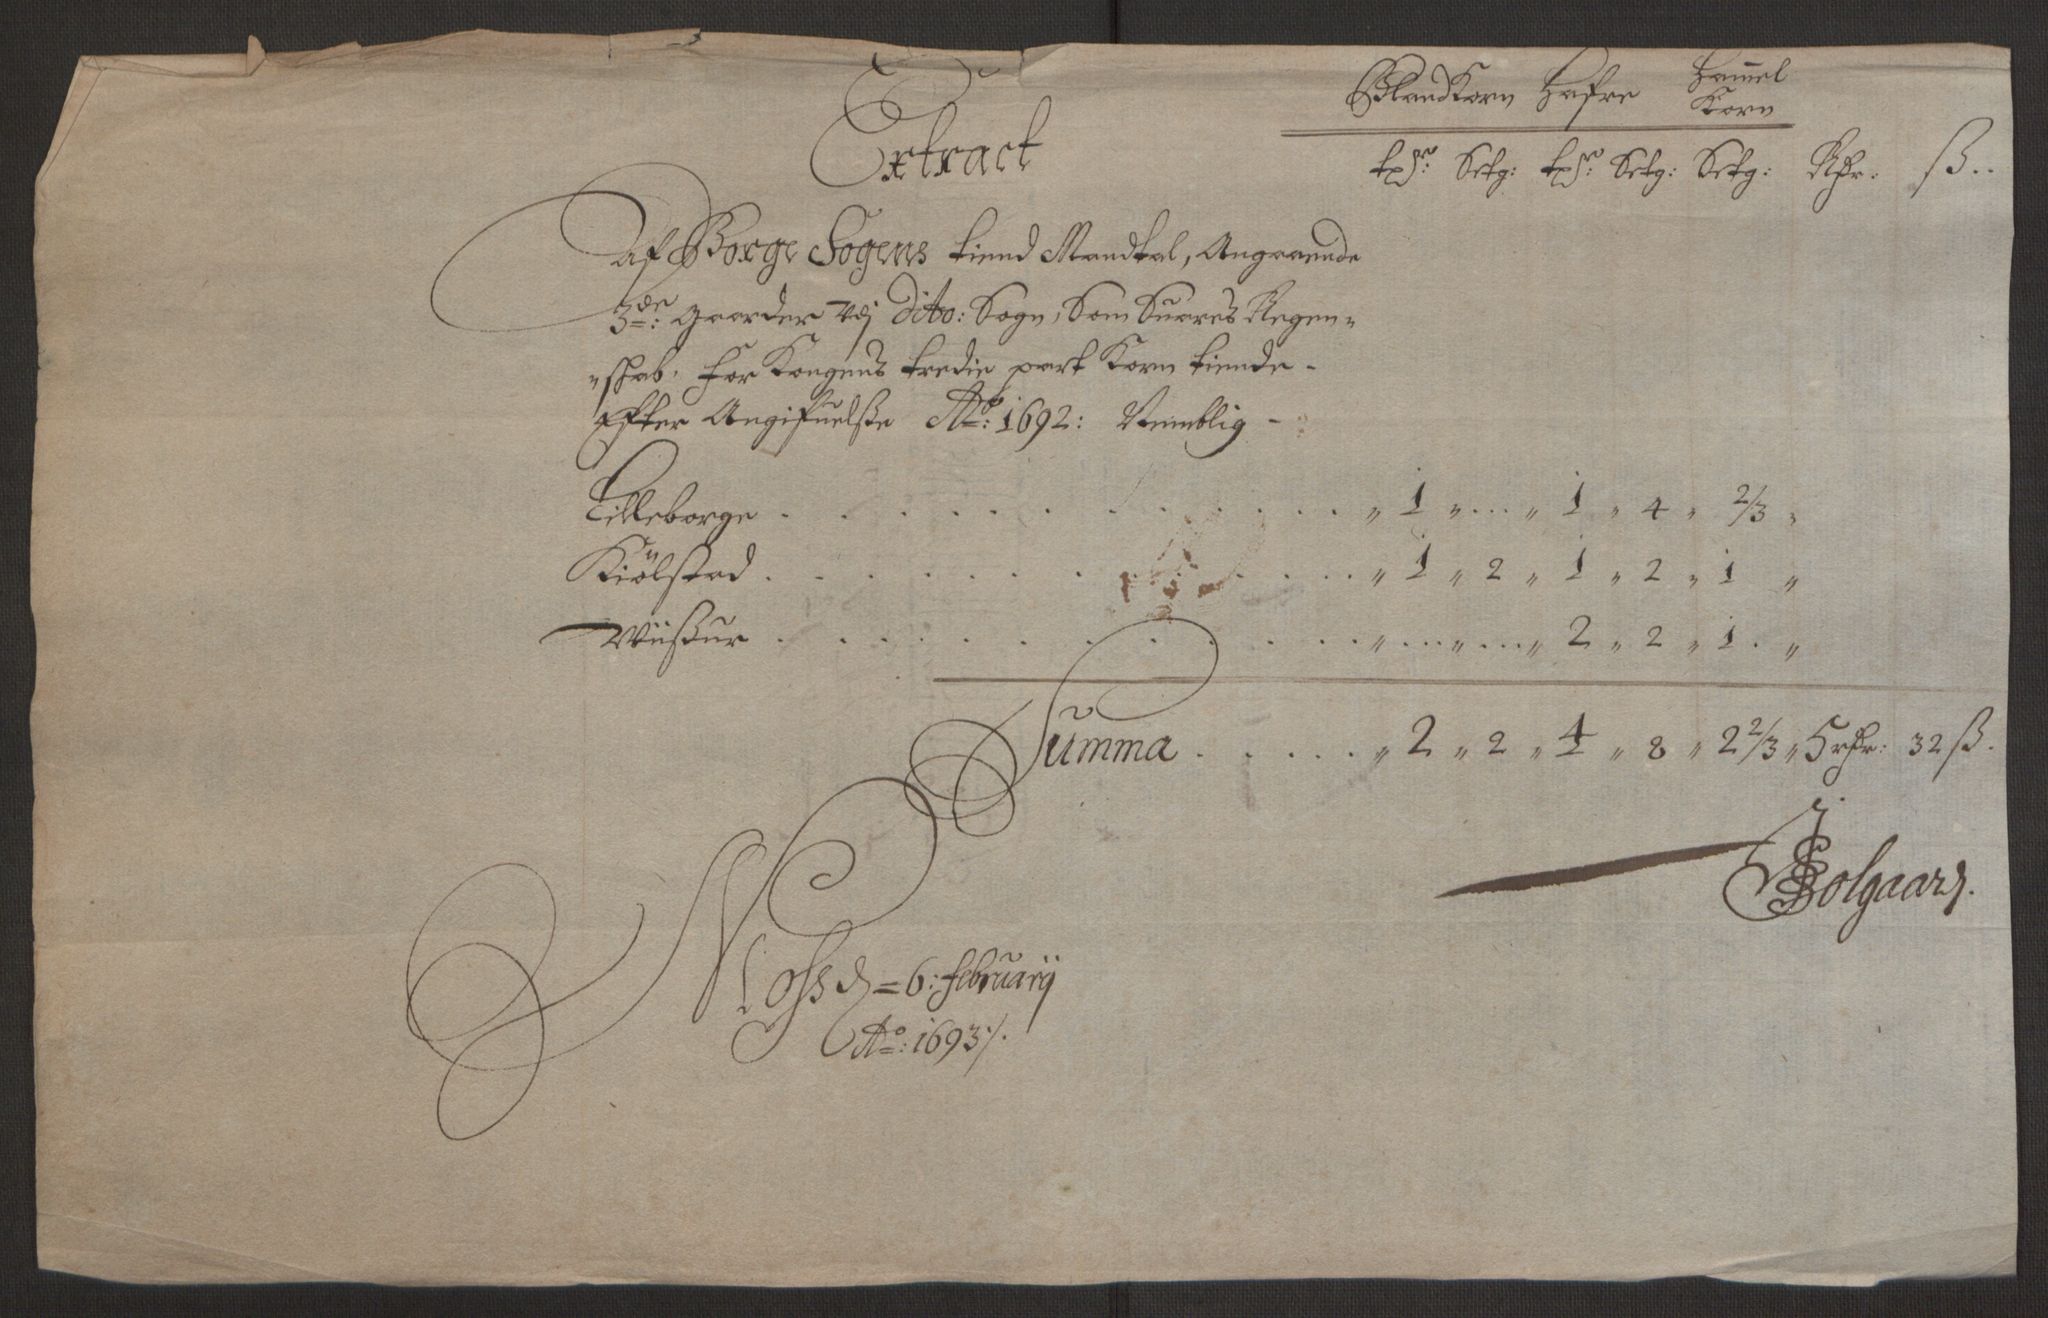 Extract
BlandKorn Hafre Hammel Korn
tpdr: Setg: tpdr: Setg: Setg: Rdr: ß..
Af Borge Sogens tiend Mandtal, Angaaende
3de: Gaarder udj Dito: Sogn, Som Suares Regen=
=skab, for Kongens tredie part Korn tiende -
Efter Angifuelße Ao: 1692: Nemblig -
Lilleborge . . . . . „ 1 „ ... „ 1 „ 4 „ 2/3 „
Kiölstad . . . . . „ 1 „ 2 „ 1 „ 2 „ 1 „
Wiißur . . . . . „ ... „ ... „ 2 „ 2 „ 1 . „
Summa . . . . . „ 2 „ 2 „ 4 „ 8 „ 2 2/3 „ 5 rdr: 32 ß.
Bolgaard.
Moss d = 6: February
Ao: 1693 /.